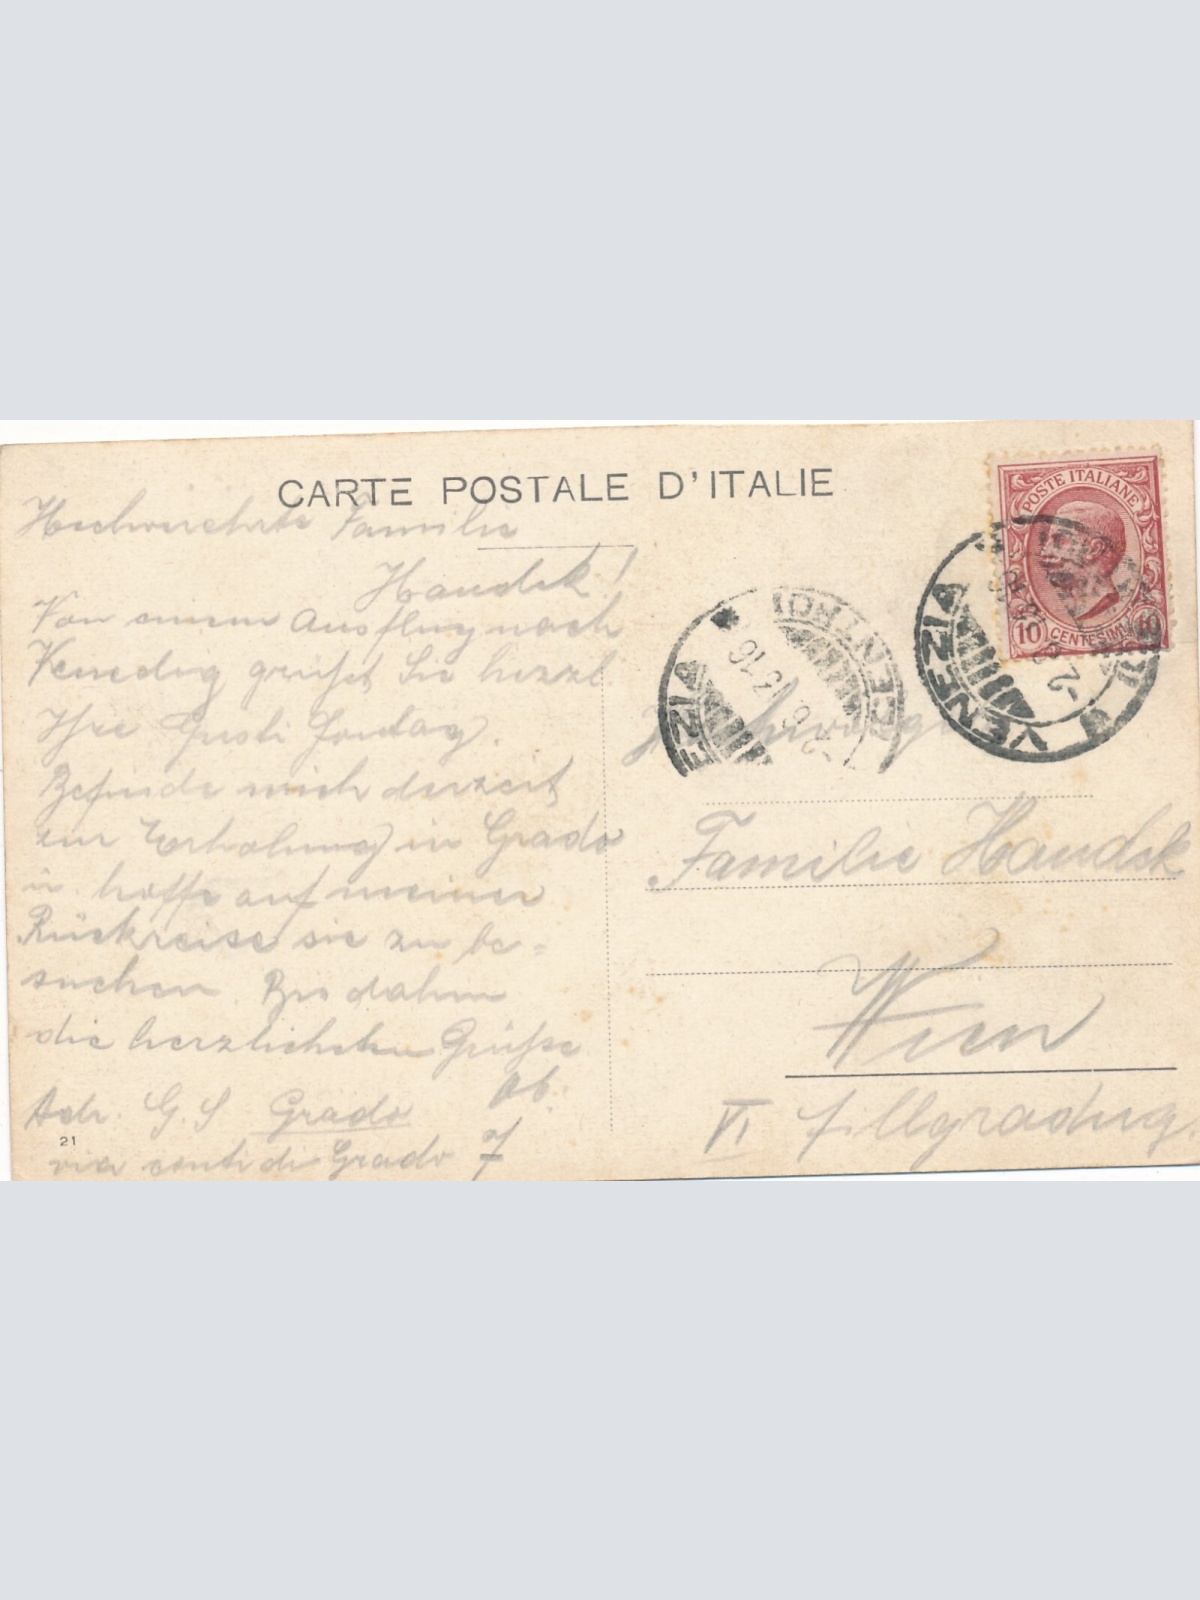 CARTE POSTALE D'ITALIE
Hochverehrte Familie
Haudek!
Von einem Ausflug nach
Venedig grüßt Sie herzl.
Ihre Gusti
Befinde mich derzeit
zur Erholung in Grado
u. hoffe auf meiner
Rückreise sie zu be-
suchen. Bis dahin
die herzlichsten Grüße
ob.
Adr. G. S Grado
21
via conti di Grado 7
POSTE ITALIANE
10 CENTESIMI 10
VENEZIA
VENEZIA CENTRO
Familie Haudek
Wien
VI